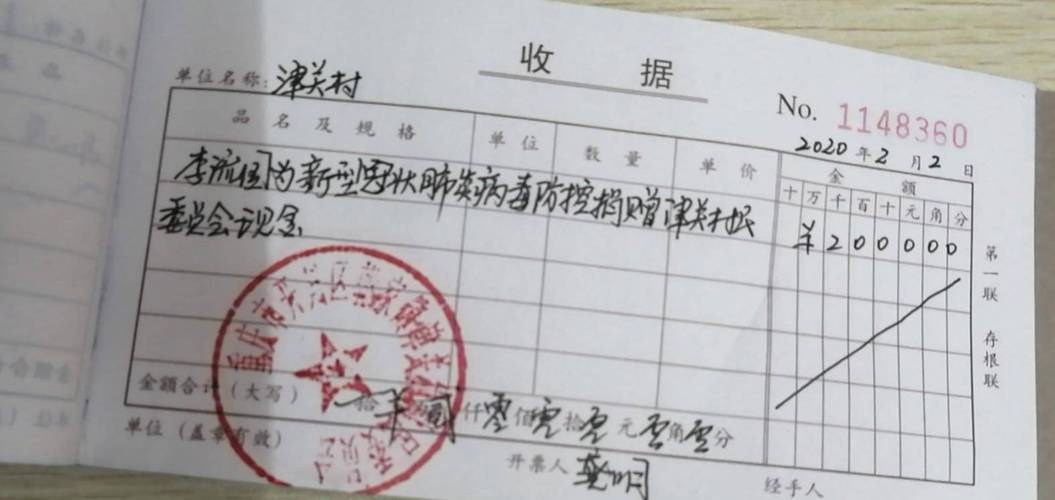 收 据
No. 1148360
单位名称: 津关村
2020 年 2 月 2 日
品名及规格 单位 数量 单价 金额
十 万 千 百 十 元 角 分
李流伍为新型冠状肺炎病毒防控捐赠津关村民
委员会现金
¥ 2 0 0 0 0 0
第一联 存根联
金额合计（大写） 拾 仟 零 佰 零 拾 零 元 零 角 零 分
单位（盖章有效）
开票人
经手人